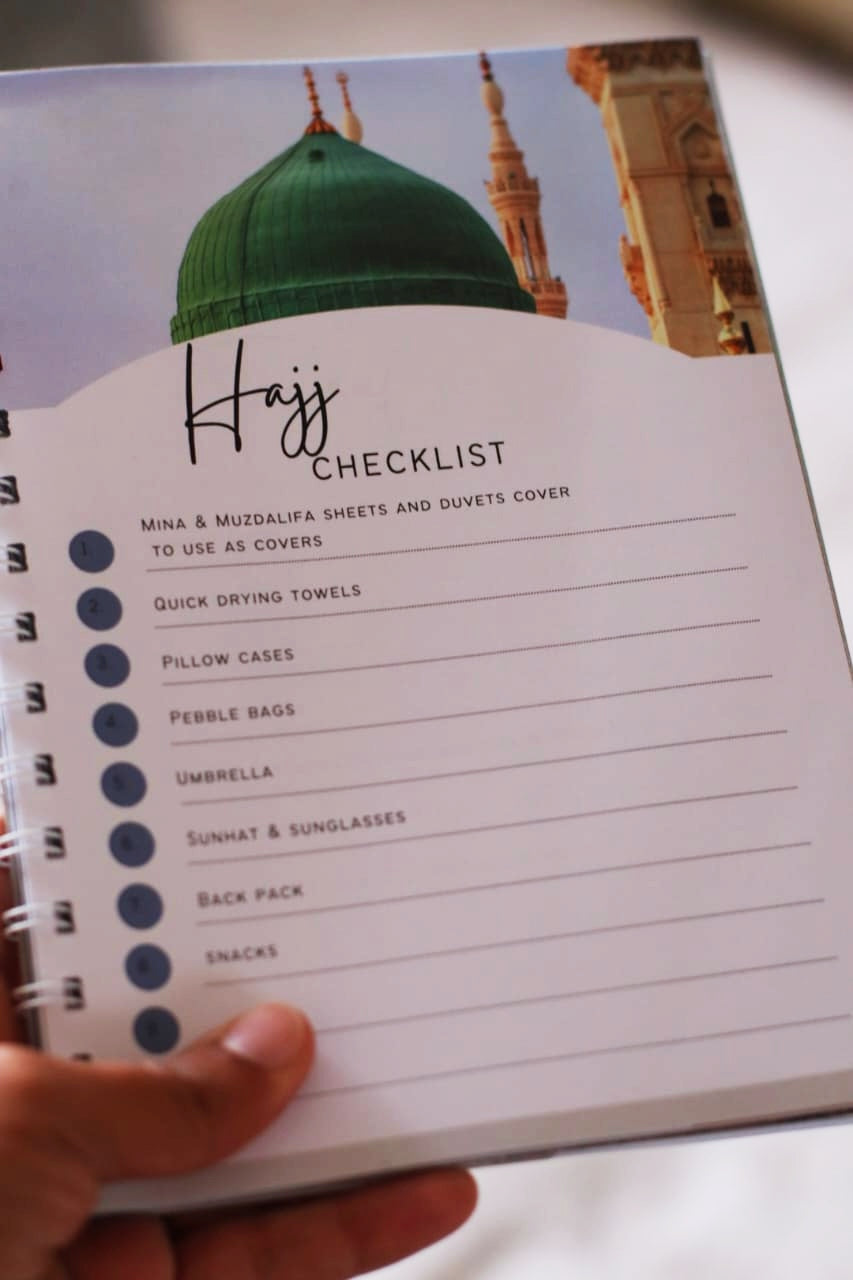 Hajj
CHECKLIST
MINA & MUZDALIFA SHEETS AND DUVETS COVER
1. TO USE AS COVERS
2. QUICK DRYING TOWELS
3. PILLOW CASES
4. PEBBLE BAGS
5. UMBRELLA
6. SUNHAT & SUNGLASSES
7. BACK PACK
8. SNACKS